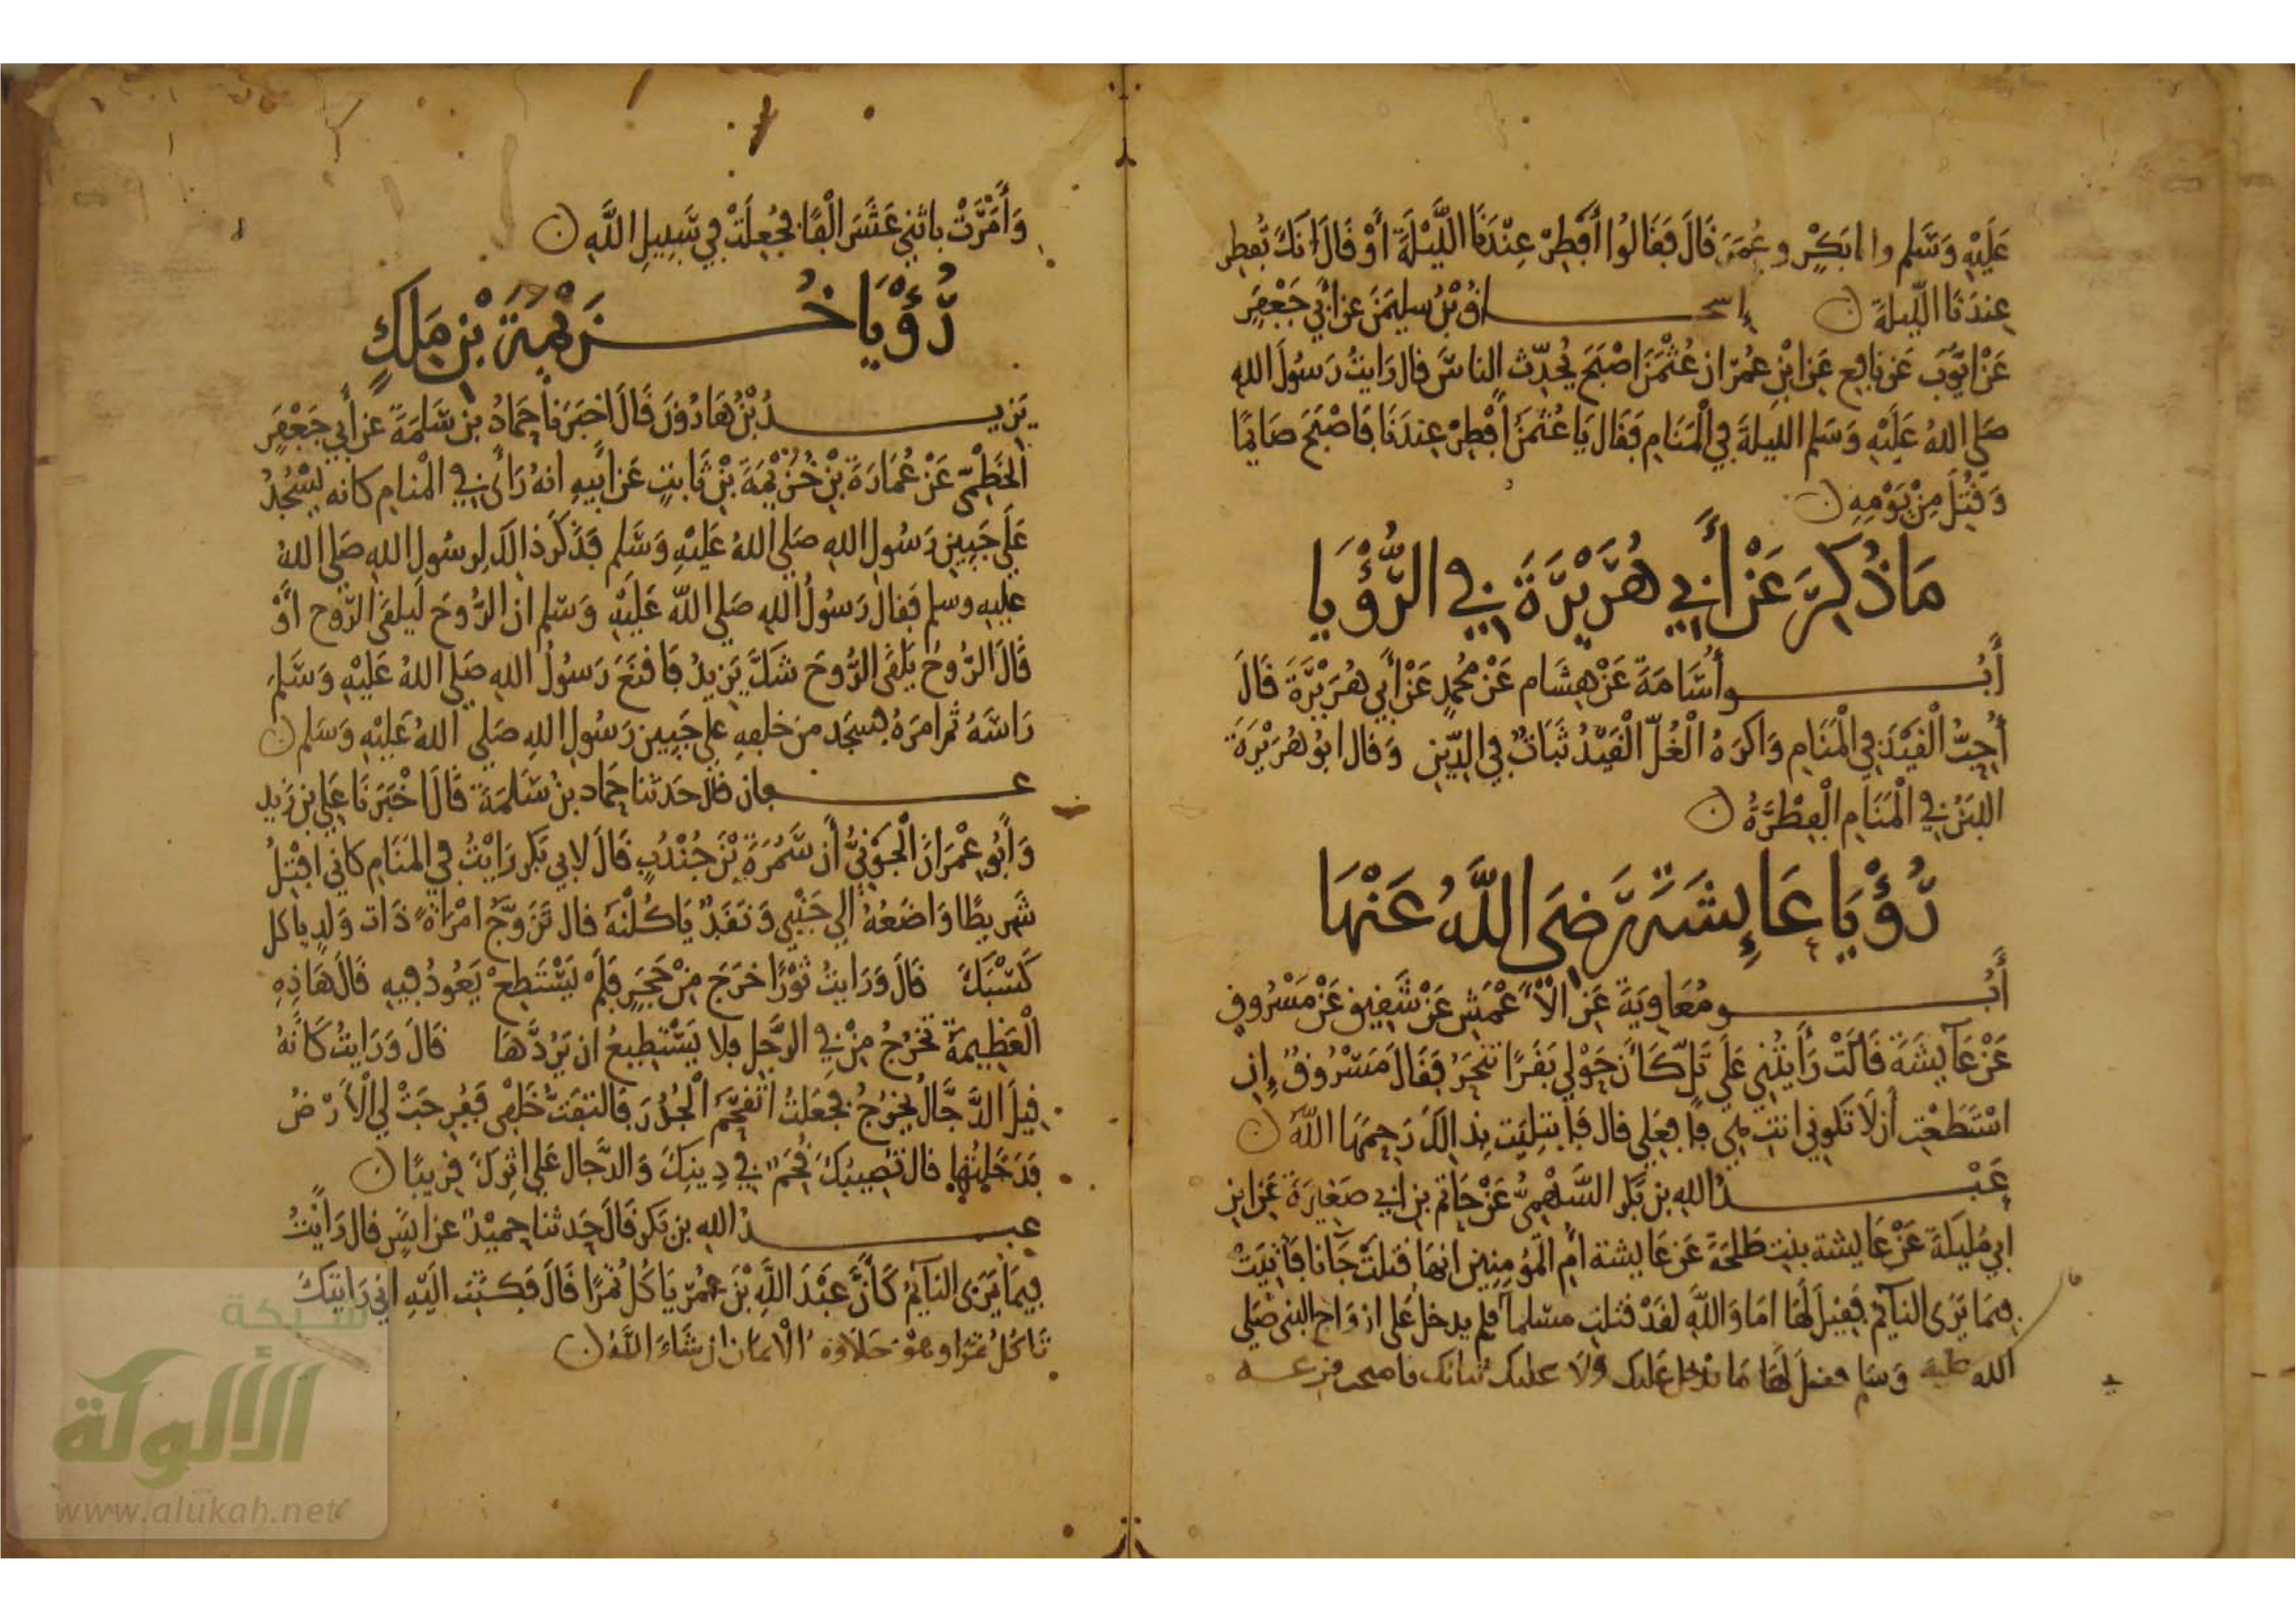 عَلَيْهِ وَسَلم وابابَكْرٍ وعُمَرَ قَالَ فَقَالُوا أَفْطِرْ عِنْدَنَا اللَّيْلَةَ أَوْ قَالَ انَكَ تُفطِر
عِندَنَا اللّيلةَ ن إسحاقُ بْنُ سليمَنَ عن أَبي جَعْفَرٍ
عَنْ ايّوُبَ عَن نافِع عَنِ ابْنِ عُمَرَ ان عُثمَنَ اصْبَحَ يُحَدِّث الناسَ قال رَايتُ رَسُولَ اللهِ
صَلى اللهُ عَلَيْهِ وَسَلم الليلةَ في الْمَنَامِ فَقَال يَا عُثمَنُ أَفْطِرْ عِندَنَا فَاصْبَحَ صَايمًا
وَقُتِلَ مِنْ يَوْمِهِ ن
مَا ذُكِرَ عَنْ أَبِي هُرَيْرَةَ فِي الرُّؤْيَا
أَبُو أُسَامَةَ عَنْ هِشَام عَنْ مُحَمدٍ عَنْ أَبي هُرَيْرَةَ قَالَ
أُحِبُّ الْقَيْدَ فِي الْمَنَامِ وَاكرَهُ الْغُلّ الْقَيْدُ ثَبَاتٌ فِي الدِّينِ وَقال ابُو هُرَيْرَةَ
اللبَنُ فِي الْمَنَامِ الْفِطْرَةُ ن
رُؤْيَا عَائِشَةَ رَضِيَ اللَّهُ عَنْهَا
أَبُو مُعَاوِيَةَ عَنِ الأَعْمَشِ عَنْ شَقِيقٍ عَنْ مَسْرُوقٍ
عَنْ عَآيِشَةَ قَالَتْ رَأَيْتُنِي عَلَى تَلٍّ كَأَنَ حَوْلِي بَقَرًا تُنْحَرُ فَقَالَ مَسْرُوقٌ إِنِ
اسْتَطَعْتِ أَن لَا تَكونِي انتِ هِي فَافعَلِي قال فَابتُلِيَت بِذَالكَ رَحِمَهَا اللَّهُ ن
عَبْدُ اللهِ بن بَكْر السَّهْمِيُّ عَنْ حَاتِم بنِ ابي صَغِيرَةَ عَنِ ابن
ابي مُلَيكَةَ عَنْ عَايشة بنتِ طَلحَةَ عَن عَايشة ام الْمُؤمِنِين انهَا قتلَتْ جَآنًا فَأُتِيَتْ
فِيمَا يَرَى النآيمُ فَقِيلَ لَهَا امَا وَاللَّهِ لقَدْ قتلتِ مسلما قالت فلم يدخل عَلى ازوَاج النبي صَلى
الله عليه وَسَلم فقيلَ لَهَا مَا يَدْخل عَليك وَلا عليك ثيابك فاصبحت فزعه
وَأَمَرَتْ باثْنَيْ عَشَرَ الْفًا فَجُعِلَتْ فِي سَبِيلِ اللَّهِ ن
رُؤْيَا خُزَيْمَةَ بْنِ مَلَكٍ
يَزِيدُ بْنُ هَارُونَ قَالَ اخبَرَنا حَمَادُ بنُ سَلمَةَ عَن أَبي جَعْفَرٍ
الْخَطْمِيِّ عَنْ عُمَارَةَ بْنِ خُزَيْمَةَ بْنِ ثَابتٍ عَن أَبيهِ انهُ رَأَى في الْمنامِ كانه يَسْجُدُ
عَلَى جَبِينِ رَسُولِ اللهِ صَلى اللهُ عَلَيْهِ وَسَلم فَذَكَرَ ذالكَ لِرسُولِ اللهِ صَلى اللهُ
عليهِ وسلم فَقال رَسُولُ اللهِ صَلى اللَّه عَلَيْهِ وَسَلم ان الرُّوحَ لَيلقى الرّوح أَوْ
قَالَ الرُّوحُ يَلقَى الرُّوحَ شَكَّ يَزيدُ فَاقنَعَ رَسُولُ اللهِ صَلى اللهُ عَلَيْهِ وَسَلم
رَاسَهُ ثم امَرَهُ فسَجَدَ من خلفِهِ على جَبِين رَسُولِ اللهِ صَلى اللهُ عَلَيْهِ وَسَلم ن
عفان قال حَدثنا حَماد بنُ سَلمَةَ قَالَ اخْبَرَنَا عَلي بن زَيد
وَأَبُو عِمْرَانَ الْجَوْنِيُّ أَن سَمُرَةَ بْنَ جُنْدُبٍ قَالَ لابي بَكر رَايْتُ في المَنَامِ كاني افْتِلُ
شَرِيطًا وَاضَعُهُ الي جَنْبِي وَنَقَدٌ يَاكُلْنَهُ قال تَزَوَّجُ امْرَاةً ذَات وَلدٍ ياكل
كَسْبَكَ قَالَ وَرَايتُ ثَوْرًا خرَجَ مِنْ جُحْرٍ فَلَمْ يَسْتَطِعْ يَعُودُ فِيهِ قَالَ هَاذِهِ
الْعَظِيمَةُ تخْرُجُ مِنْ فِي الرَّجُلِ فلا يَسْتَطِيعُ ان يَرُدَّهَا قَالَ وَرَايتُ كَانَهُ
قِيلَ الدَّجَّالُ يَخْرُجُ فَجَعَلتُ اتقحَّمُ الْجُدُرَ فَالتفَتُّ خَلفي فَفُرِجَتْ لي الْأَرْضُ
فَدَخَلتُها قال تصِيبُكَ قُحَمٌ فِي دِينِكَ وَالدَّجَال عَلى اثرِكَ قَرِيبًا ن
عبدُ اللهِ بن بَكر قَالَ حَدثنا حمَيْدٌ عَن انَسٍ قال رَأَيْتُ
فِيمَا يَرَى النآيمُ كَأَنَّ عَبْدَ اللَّهِ بْنَ عُمَرَ يَاكُلُ تَمْرًا قَالَ فَكتَبْتُ الَيْهِ اني رَايتكَ
تَاكلُ تَمْرًا وهْوَ حَلَاوَةُ الْايمَان ان شَاءَ اللَّهُ ن
شبكة
الألوكة
www.alukah.net